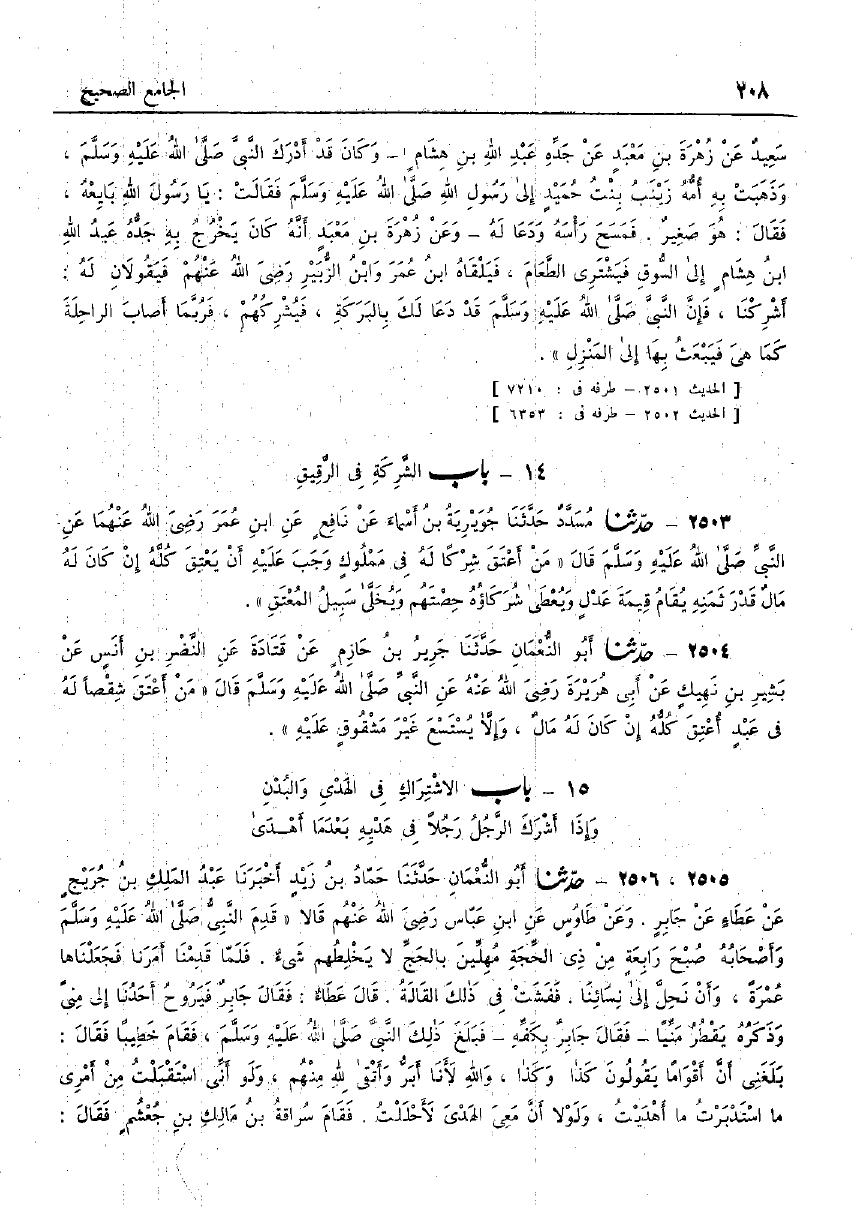 ٢٠٨ الجامع الصحيح
سَعِيدٌ عَنْ زُهْرَةَ بنِ مَعْبَدٍ عَنْ جَدِّهِ عَبْدِ اللهِ بنِ هِشَامٍ - وَكَانَ قَدْ أَدْرَكَ النَّبِىَّ صَلَّىٰ اللهُ عَلَيْهِ وَسَلَّمَ ،
وَذَهَبَتْ بِهِ أُمُّهُ زَيْنَبُ بِنْتُ حُمَيْدٍ إِلىٰ رَسُولِ اللهِ صَلَّىٰ اللهُ عَلَيْهِ وَسَلَّمَ فَقَالَتْ : يَا رَسُولَ اللهِ بَايِعْهُ ،
فَقَالَ : هُوَ صَغِيرٌ . فَمَسَحَ رَأْسَهُ وَدَعَا لَهُ – وَعَنْ زُهْرَةَ بنِ مَعْبَدٍ أَنَّهُ كَانَ يَخْرُجُ بِهِ جَدُّهُ عَبدُ اللهِ
ابنُ هِشَامٍ إِلىٰ السُّوقِ فَيَشْتَرِى الطَّعَامَ ، فَيَلْقَاهُ ابنُ عُمَرَ وَابْنُ الزُّبَيْرِ رَضِىَ اللهُ عَنْهُمْ فَيَقُولَانِ لَهُ :
أَشْرِكْنَا ، فَإِنَّ النَّبِىَّ صَلَّىٰ اللهُ عَلَيْهِ وَسَلَّمَ قَدْ دَعَا لَكَ بِالبَرَكَةِ ، فَيُشْرِكُهُمْ ، فَرُبَّمَا أَصَابَ الراحِلَةَ
كَمَا هِىَ فَيَبْعَثُ بِهَا إِلىٰ المَنْزِلِ » .
[ الحديث ٢٥٠١ – طرفه فى : ٧٢١٠ ]
[ الحديث ٢٥٠٢ – طرفه فى : ٦٣٥٣ ]
١٤ – بابُ الشَّرِكَةِ فِى الرَّقِيقِ
٢٥٠٣ – حدّثنا مُسَدَّدٌ حَدَّثَنَا جُوَيْرِيَةُ بنُ أَسْمَاءَ عَنْ نَافِعٍ عَنِ ابنِ عُمَرَ رَضِىَ اللهُ عَنْهُمَا عَنِ
النَّبِىِّ صَلَّىٰ اللهُ عَلَيْهِ وَسَلَّمَ قَالَ « مَنْ أَعْتَقَ شِرْكًا لَهُ فِى مَمْلُوكٍ وَجَبَ عَلَيْهِ أَنْ يَعْتِقَ كُلَّهُ إِنْ كَانَ لَهُ
مَالٌ قَدْرَ ثَمَنِهِ يُقَامُ قِيمَةَ عَدْلٍ وَيُعْطَىٰ شُرَكَاؤُهُ حِصَّتَهُم وَيُخَلَّىٰ سَبِيلُ المُعْتَقِ » .
٢٥٠٤ – حدّثنا أَبُو النُّعْمَانِ حَدَّثَنَا جَرِيرُ بنُ حَازِمٍ عَنْ قَتَادَةَ عَنِ النَّضْرِ بنِ أَنَسٍ عَنْ
بَشِيرِ بنِ نَهِيكٍ عَنْ أَبِى هُرَيْرَةَ رَضِىَ اللهُ عَنْهُ عَنِ النَّبِىِّ صَلَّىٰ اللهُ عَلَيْهِ وَسَلَّمَ قَالَ « مَنْ أَعْتَقَ شِقْصاً لَهُ
فِى عَبْدٍ أُعْتِقَ كُلُّهُ إِنْ كَانَ لَهُ مَالٌ ، وَإِلَّا يُسْتَسْعَ غَيْرَ مَشْقُوقٍ عَلَيْهِ » .
١٥ – بابُ الاشْتِرَاكِ فِى الهَدْىِ وَالبُدْنِ
وَإِذَا أَشْرَكَ الرَّجُلُ رَجُلاً فِى هَدْيِهِ بَعْدَمَا أَهْدَىٰ
٢٥٠٥ ، ٢٥٠٦ – حدّثنا أَبُو النُّعْمَانِ حَدَّثَنَا حَمَّادُ بنُ زَيْدٍ أَخْبَرَنَا عَبْدُ المَلِكِ بنُ جُرَيْجٍ
عَنْ عَطَاءٍ عَنْ جَابِرٍ . وَعَنْ طَاوُسٍ عَنِ ابنِ عَبَّاسٍ رَضِىَ اللهُ عَنْهُم قَالا « قَدِمَ النَّبِىُّ صَلَّىٰ اللهُ عَلَيْهِ وَسَلَّمَ
وَأَصْحَابُهُ صُبْحَ رَابِعَةٍ مِنْ ذِى الحَجَّةِ مُهِلِّينَ بِالحَجِّ لا يَخْلِطُهم شَىءٌ . فَلَمَّا قَدِمْنَا أَمَرَنَا فَجَعَلْنَاها
عُمْرَةً ، وَأَنْ نَحِلَّ إِلىٰ نِسَائِنَا . فَفَشَتْ فِى ذَٰلِكَ القَالَةُ . قَالَ عَطَاءٌ : فَقَالَ جَابِرٌ فَيَرُوحُ أَحَدُنَا إِلى مِنىً
وَذَكَرُهُ يَقْطُرُ مَنِيًّا – فَقَالَ جَابِرٌ بِكَفِّهِ – فَبَلَغَ ذَٰلِكَ النَّبِىَّ صَلَّىٰ اللهُ عَلَيْهِ وَسَلَّمَ ، فَقَامَ خَطِيبًا فَقَالَ :
بَلَغَنِى أَنَّ أَقْوَامًا يَقُولُونَ كَذَا وَكَذَا ، وَاللهِ لَأَنَا أَبَرُّ وَأَتْقَىٰ لِلهِ مِنْهُم ، وَلَو أَنِّى اسْتَقْبَلْتُ مِنْ أَمْرِى
ما اسْتَدْبَرْتُ ما أَهْدَيْتُ ، وَلَوْلا أَنَّ مَعِىَ الهَدْىَ لَأَحْلَلتُ . فَقَامَ سُرَاقَةُ بنُ مَالِكِ بنِ جُعْشُمٍ فَقَالَ :